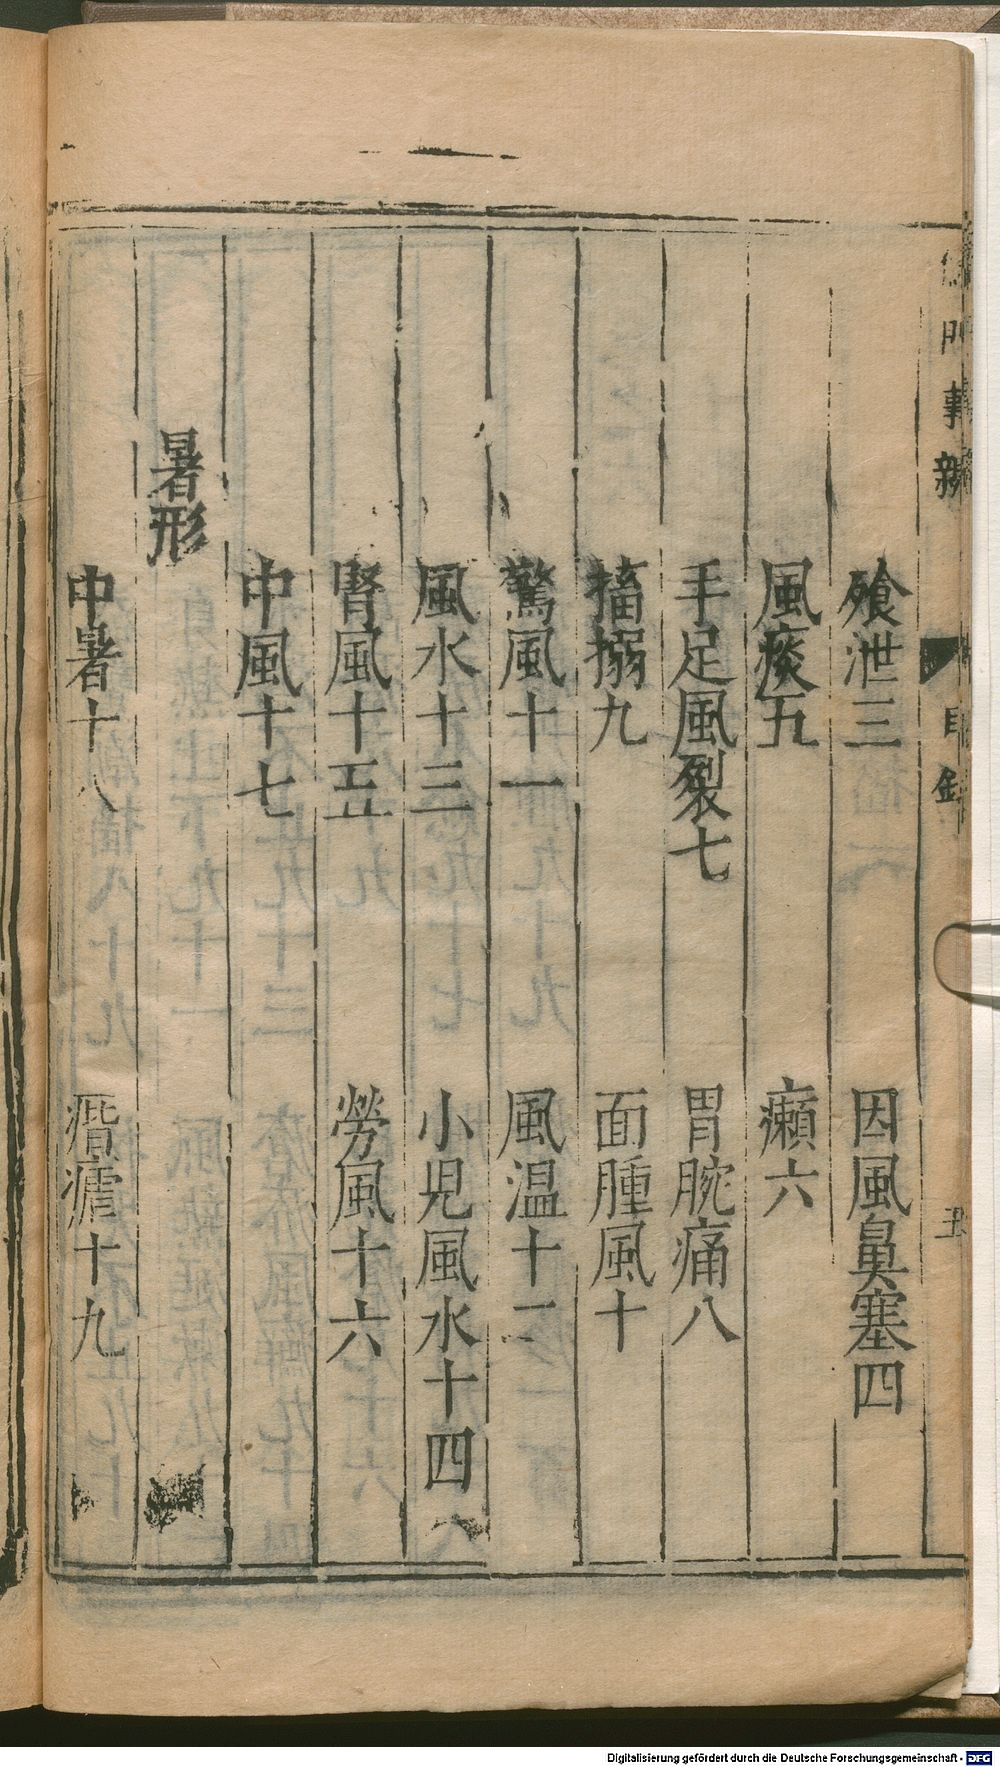 門事親
目錄
飱泄三　因風鼻塞四
風痰五　癩六
手足風裂七　胃脘痛八
搐搦九　面腫風十
驚風十一　風温十二
風水十三　小児風水十四
腎風十五　勞風十六
中風十七
暑形
中暑十八　痎瘧十九
Digitalisierung gefördert durch die Deutsche Forschungsgemeinschaft - DFG